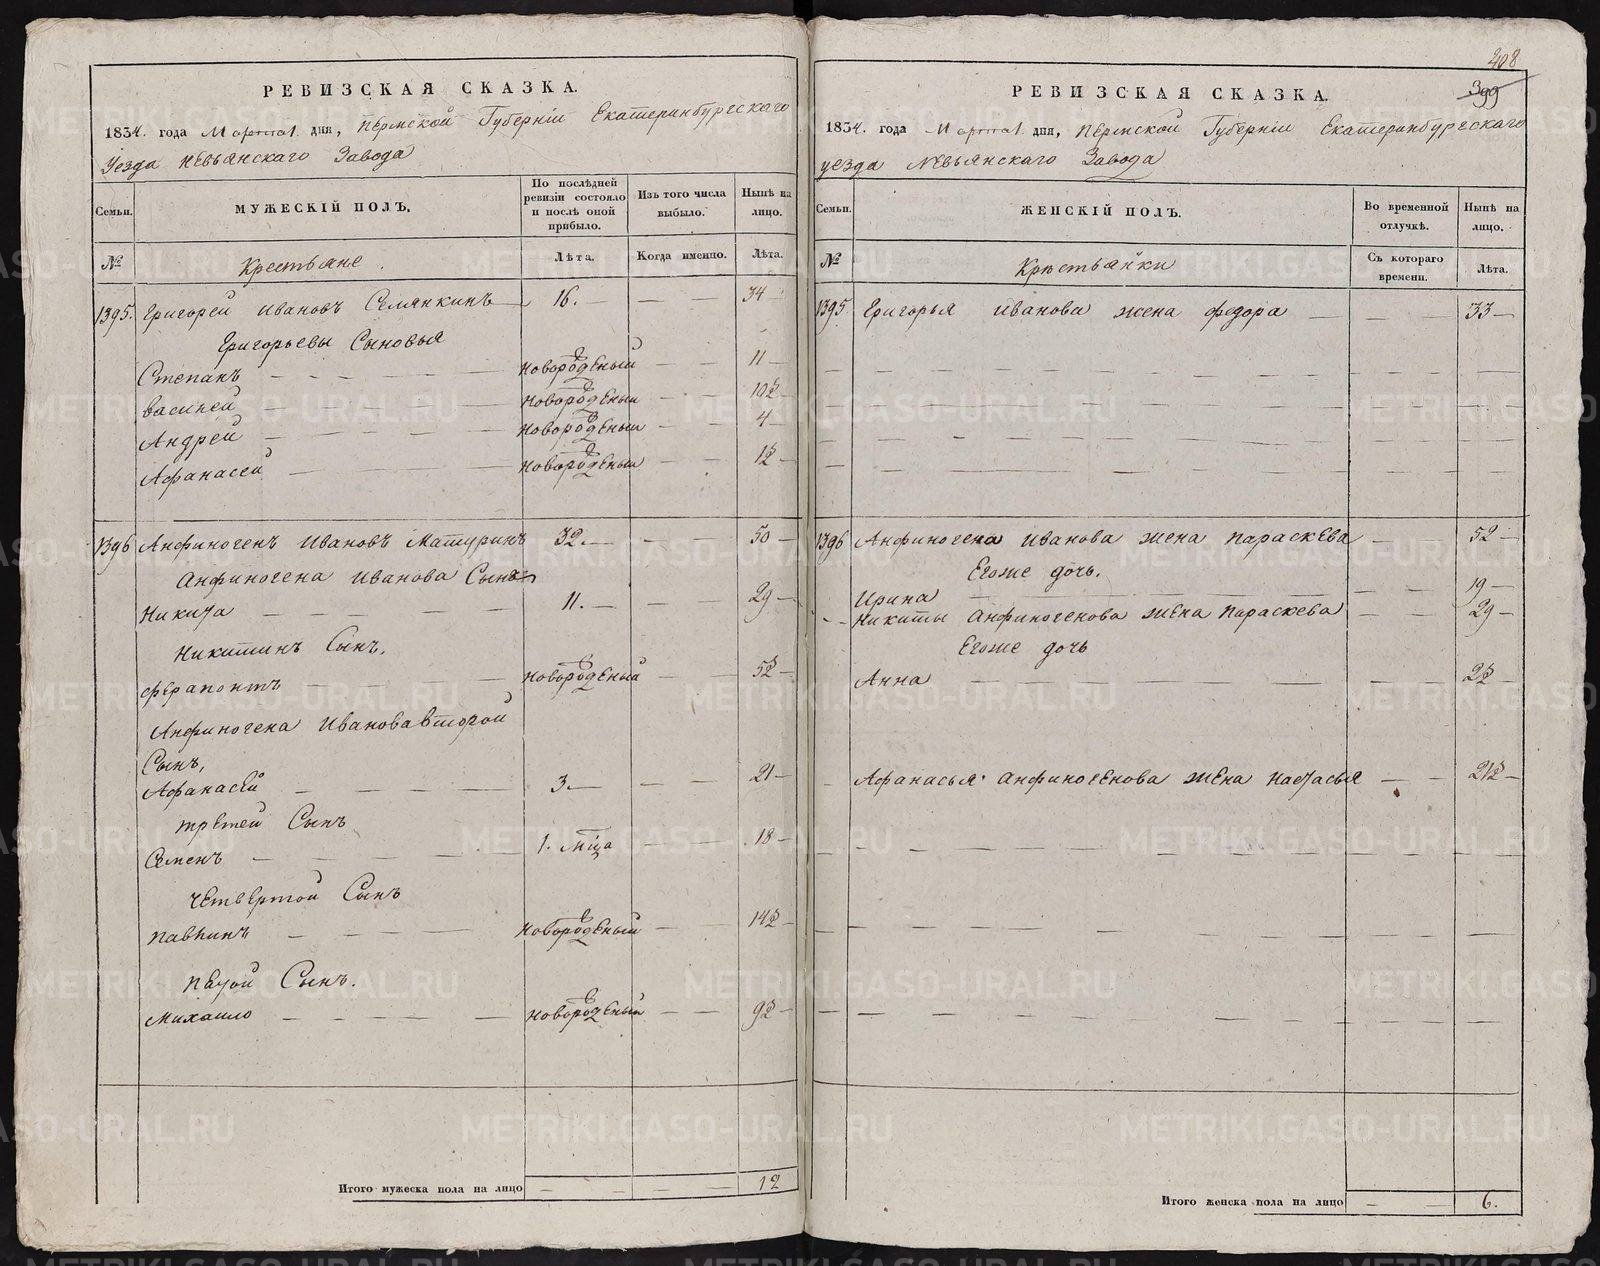 РЕВИЗСКАЯ СКАЗКА.
1834. года Марта 1 дня, Пермской Губерніи Екатеринбургскаго
Уезда Невьянскаго Завода
Семьи.
МУЖЕСКІЙ ПОЛЪ.
По послѣдней ревизіи состояло и послѣ оной прибыло.
Изъ того числа выбыло.
Нынѣ на лицо.
№
Крестьяне.
Лѣта.
Когда именно.
Лѣта.
1395. Григорей Ивановъ Семянкинъ — 16. — — 34 —
Григорьевы Сыновья
Степанъ — — — — новорожденый — — 11 —
Василей — — — — новорожденый — — 10½ —
Андрей — — — — новорожденый — — 4 —
Афанасей — — — новорожденый — — 1½ —
1396 Анфиногенъ Ивановъ Матуринъ 32. — — — 50 —
Анфиногена Иванова Сынъ
Никита — — — — 11. — — — 29 —
Никитинъ Сынъ.
Ферапонтъ — — — новорожденый — — 5½ —
Анфиногена Иванова второй
Сынъ,
Афанасей — — — — 3 — — — 21 —
третей Сынъ
Семенъ — — — — 1. мца — — 18 —
четвертой Сынъ
Павлинъ — — — — новорожденый — — 14½ —
пятой Сынъ.
Михайло — — — — новорожденый — — 9½ —
Итого мужеска пола на лицо — — — 12
408
399
РЕВИЗСКАЯ СКАЗКА.
1834. года Марта 1 дня, Пермской Губерніи Екатеринбургскаго
уезда Невьянскаго Завода
Семьи.
ЖЕНСКІЙ ПОЛЪ.
Во временной отлучкѣ.
Нынѣ на лицо.
№
Крестьянки
Съ котораго времени.
Лѣта.
1395 Григорья Иванова жена Федора — — — 33 —
1396 Анфиногена Иванова жена Параскева — — 52 —
Егоже дочь.
Ирина — — — 19 —
Никиты Анфиногенова жена Параскева — — 29 —
Егоже дочь
Анна — — — — — 2½ —
Афанасья Анфиногенова жена Настасья — — 21½ —
Итого женска пола на лицо — — 6.
METRIKI.GASO-URAL.RU